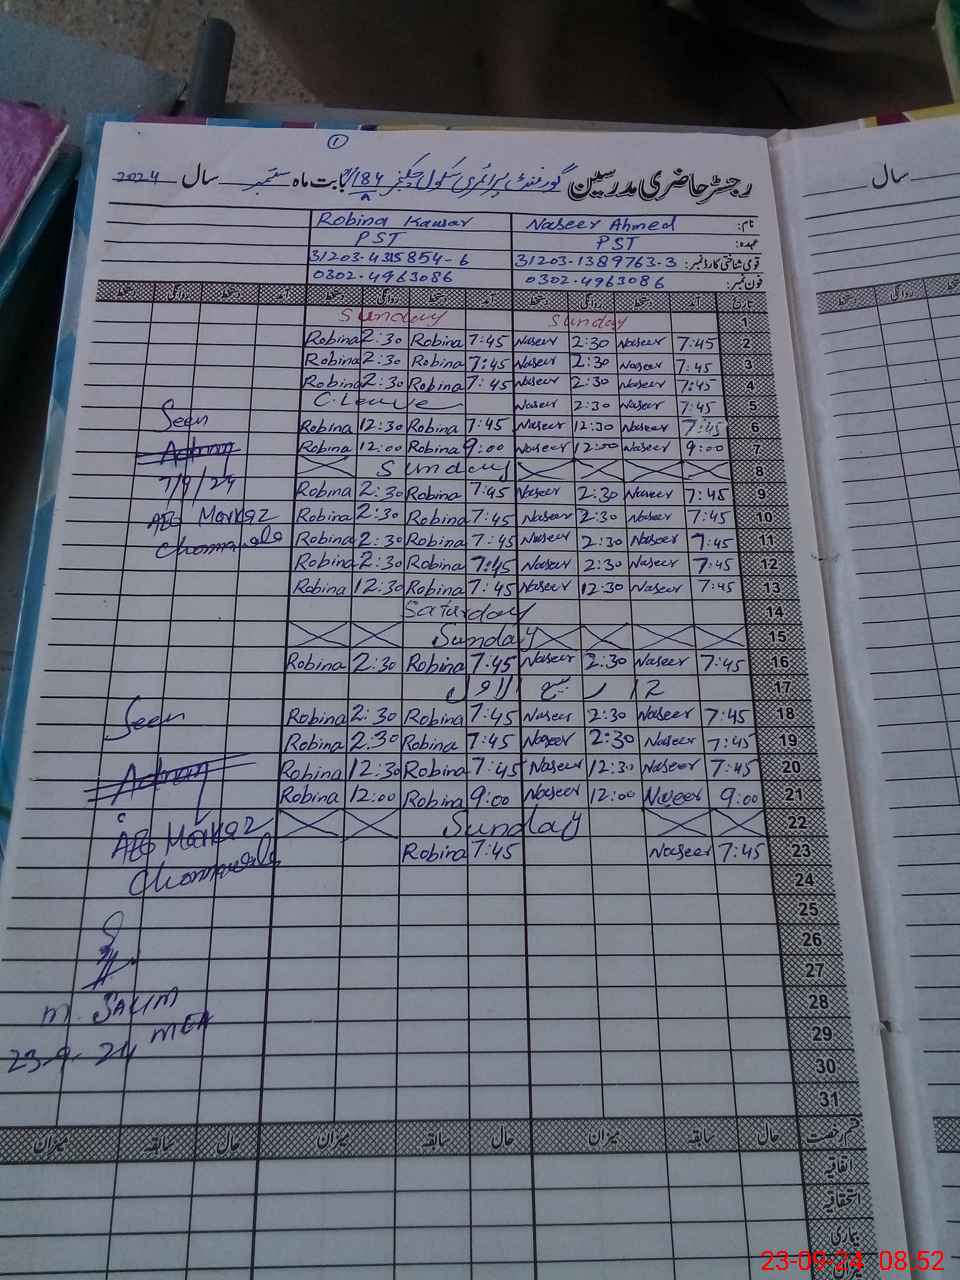 ①
رجسٹر حاضری مدرسین گورنمنٹ پرائمری سکول 184/ بابت ماہ ستمبر سال 2024
سال
نام: Naseer Ahmed Robina Kausar
عہدہ: PST PST
قومی شناختی کارڈ نمبر: 31203-1389763-3 31203-4315854-6
فون نمبر: 0302-4963086 0302-4963086
تاریخ آمد دستخط روانگی دستخط آمد دستخط روانگی دستخط آمد دستخط روانگی دستخط
1 Sunday Sunday
2 7:45 Naseer 2:30 Naseer 7:45 Robina 2:30 Robina
3 7:45 Naseer 2:30 Naseer 7:45 Robina 2:30 Robina
4 7:45 Naseer 2:30 Naseer 7:45 Robina 2:30 Robina
5 7:45 Naseer 2:30 Naseer C.Leave
6 7:45 Naseer 12:30 Naseer 7:45 Robina 12:30 Robina
7 9:00 Naseer 12:00 Naseer 9:00 Robina 12:00 Robina
8 Sunday
9 7:45 Naseer 2:30 Naseer 7:45 Robina 2:30 Robina
10 7:45 Naseer 2:30 Naseer 7:45 Robina 2:30 Robina
11 7:45 Naseer 2:30 Naseer 7:45 Robina 2:30 Robina
12 7:45 Naseer 2:30 Naseer 7:45 Robina 2:30 Robina
13 7:45 Naseer 12:30 Naseer 7:45 Robina 12:30 Robina
14 Saturday
15 Sunday
16 7:45 Naseer 2:30 Naseer 7:45 Robina 2:30 Robina
17 12 ربیع الاول
18 7:45 Naseer 2:30 Naseer 7:45 Robina 2:30 Robina
19 7:45 Naseer 2:30 Naseer 7:45 Robina 2:30 Robina
20 7:45 Naseer 12:30 Naseer 7:45 Robina 12:30 Robina
21 9:00 Naseer 12:00 Naseer 9:00 Robina 12:00 Robina
22 Sunday
23 7:45 Naseer 7:45 Robina
24
25
26
27
28
29
30
31
Seen
Adnan
7/9/24
AEO Markaz
Seen
Adnan
AEO Markaz
M. SALIM
MEA
23-9-24
قسم رخصت حال سابقہ میزان حال سابقہ میزان حال سابقہ میزان
اتفاقیہ
استحقاقیہ
بیماری
میزان
روانگی دستخط
23-09-24 08.52